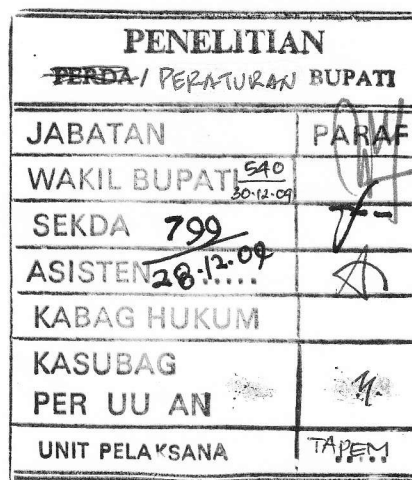 PENELITIAN
PERDA / PERATURAN BUPATI
JABATAN PARAF
WAKIL BUPATI 540
30-12-09
SEKDA 799
ASISTEN 28-12-09 .....
KABAG HUKUM
KASUBAG
PER UU AN
UNIT PELAKSANA TAPEM